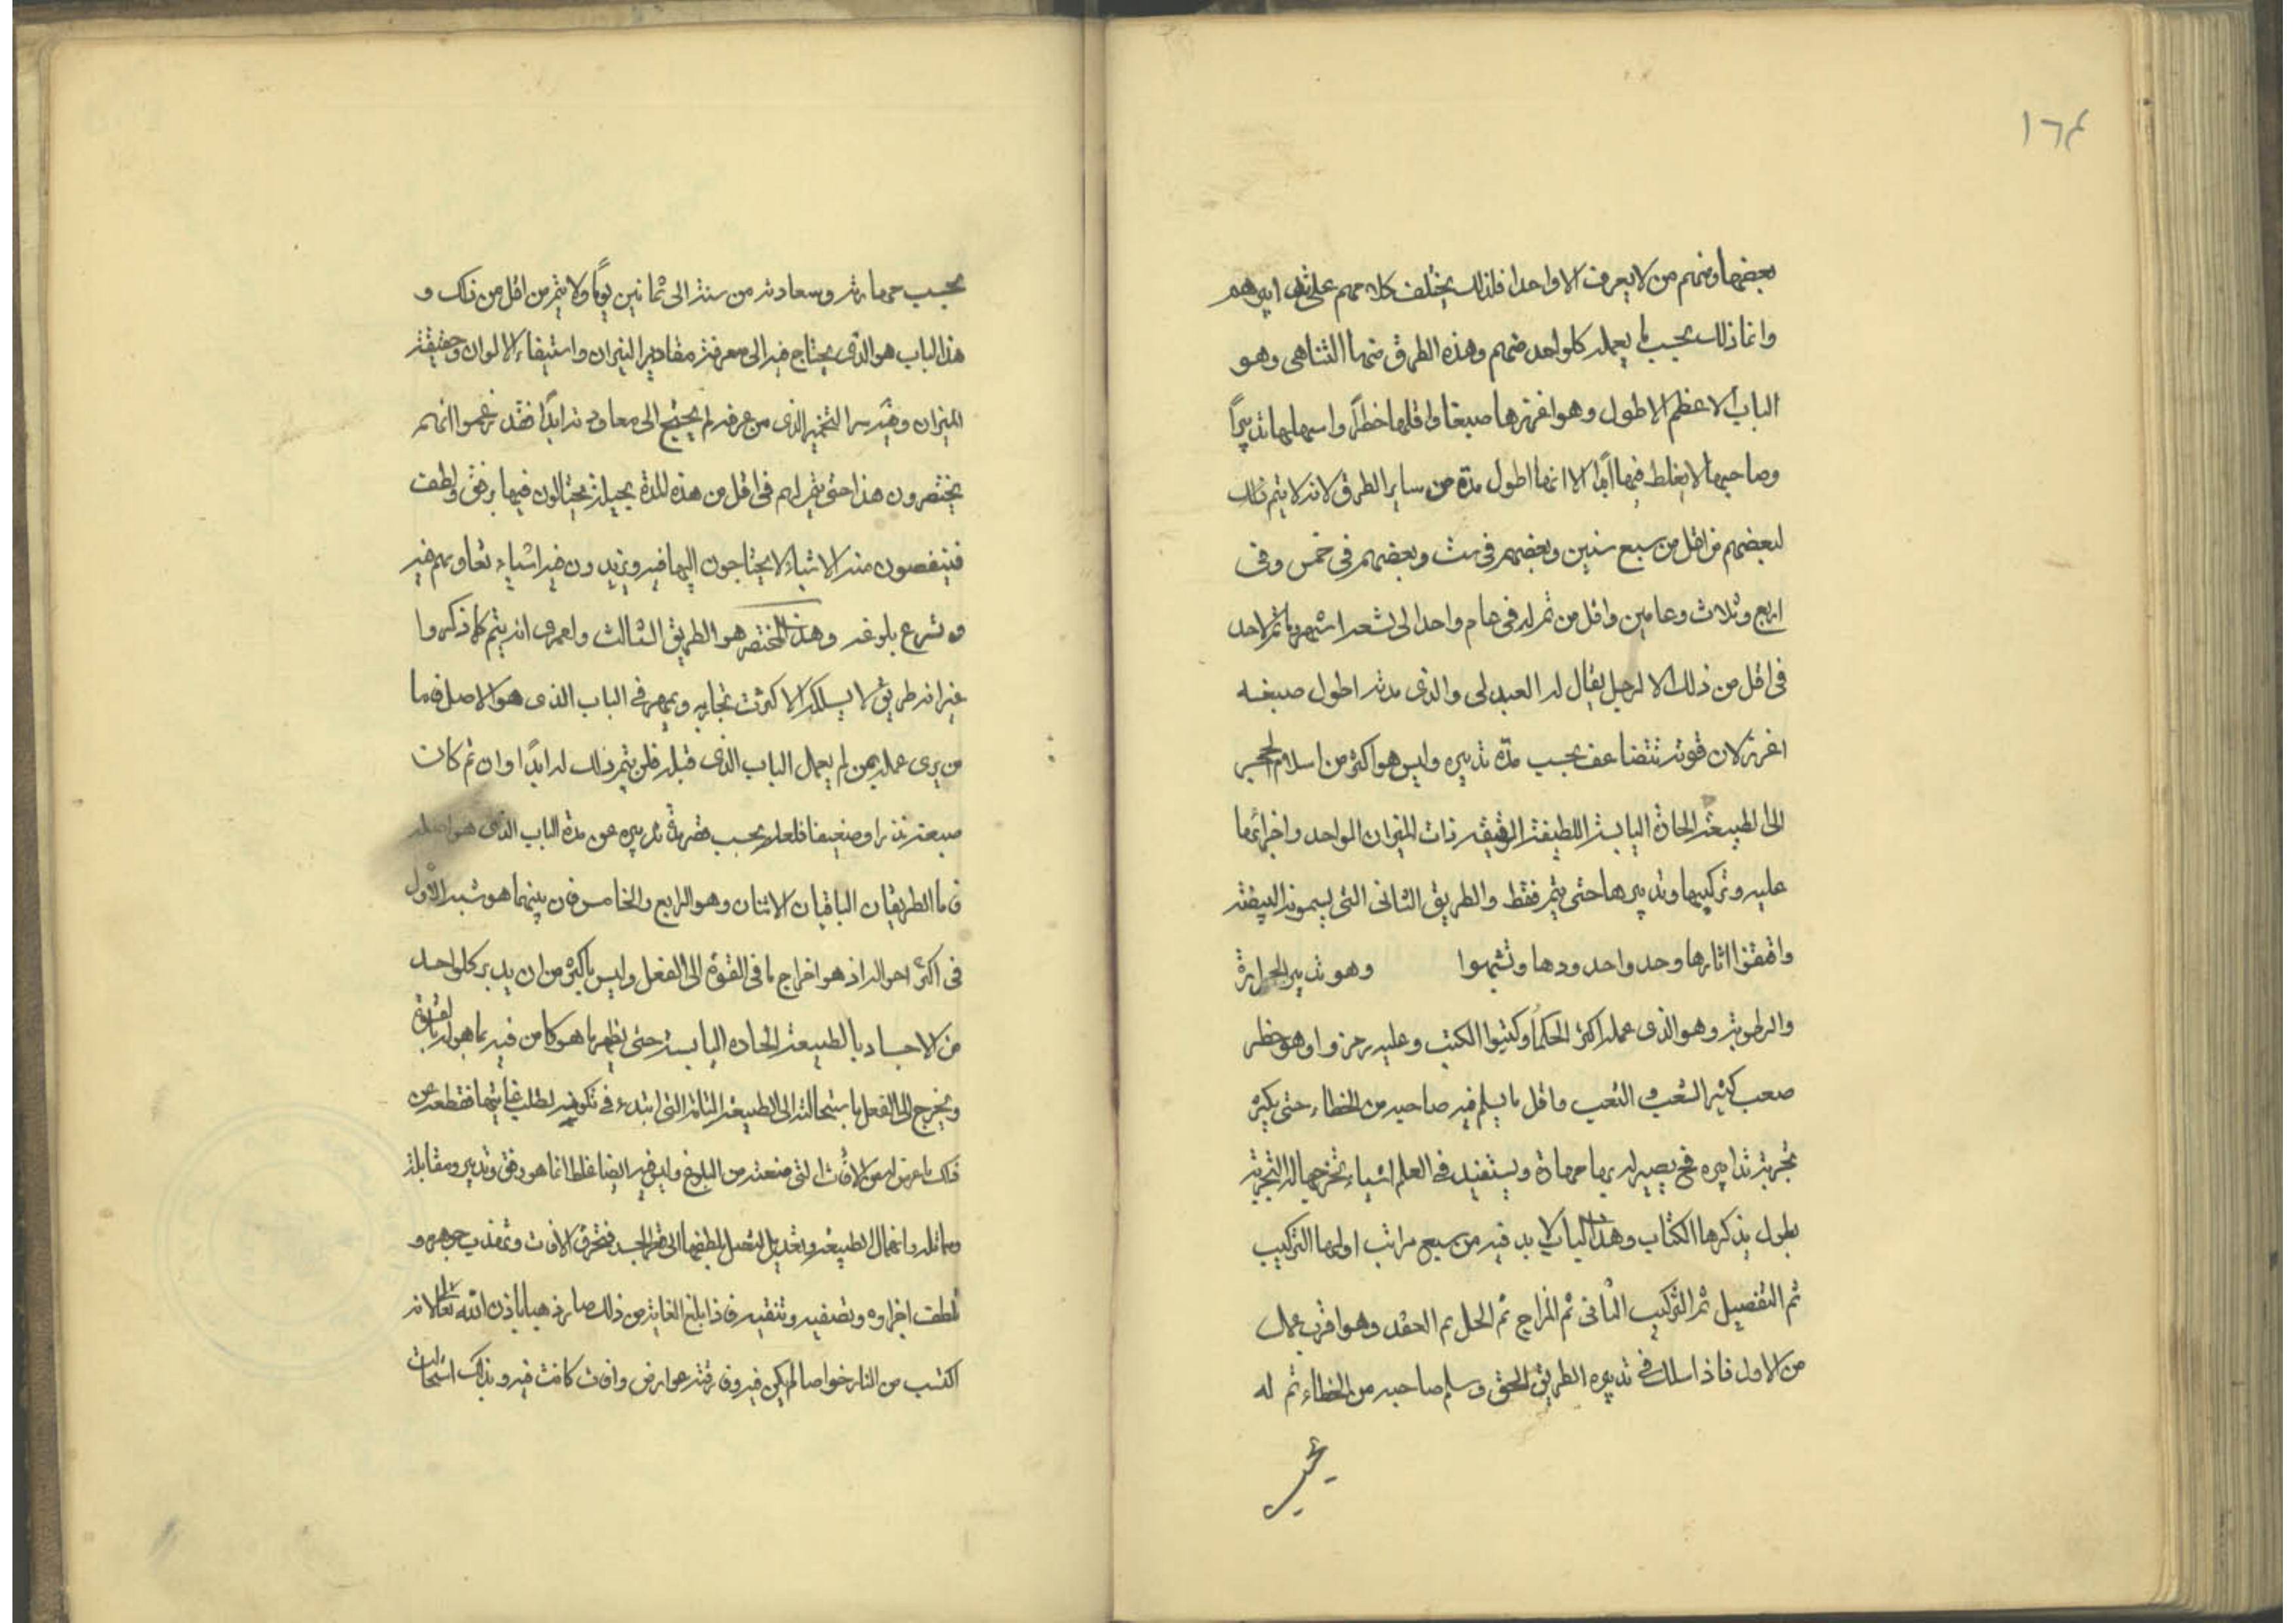 ١٦٤
بعضها ومنهم من لا يعرف الا واحدا فلذلك يختلف كلامهم على
وانما ذلك بحسب ما يعمله كل واحد منهم وهذه الطرق منها التناهى وهو
الباب الاعظم الاطول وهو اغزرها صبغا واقلها خطرا واسهلها تدبيرًا
وصاحبها لا يغلط فيها ابدا الا انها اطول مدة من ساير الطرق لانه لا يتم ذلك
لبعضهم فى اقل من سبع سنين وبعضهم فى ست وبعضهم فى خمس وفى
اربع وثلاث وعامين واقل من تم له فى عام واحد الى تسعة اشهر ما تم لاحد
فى اقل من ذلك الا لرجل يقال له العبدلى والذى مدته اطول صبغه
اغزر لان قوته تتضاعف بحسب مدة تدبيره وليس هو اكثر من اسلام الحجر
الى الطبيعة الحادة اليابسة اللطيفة الرقيقة ذات الميزان الواحد واجرائها
عليه وتركيبها وتدبيرها حتى يتم فقط والطريق الثانى التى يسمونه البيضة
واقتفوا اثارها وحد واحدودها وتشبهوا وهو تدبير الحرارة
والرطوبة وهو الذى عمله اكثر الحكمآ وكتبوا الكتب وعليه رمزوا وهو خطر
صعب كثير الشعب التعب واقل ما يسلم فيه صاحبه من الخطاء حتى يكثر
تجربة تدابيره فح يصير له بها مهارة ويستفيد فى العلم اشياء تخرجها له التجربة
يطول بذكرها الكتاب وهذا الباب لا بد فيه من سبع مراتب اولها التركيب
ثم التفصيل ثم التركيب الثانى ثم المزاج ثم الحل ثم العقد وهو اقرب عملا
من الاول فاذا سلك فى تدبيره الطريق الحق وسلم صاحبه من الخطاء تم له
بحسب مهارته وسعادته من سنة الى ثمانين يومًا ولا يتم من اقل من ذلك و
هذا الباب هو الذى يحتاج فيه الى معرفة مقادير النيران واستيفاء الالوان وحقيقة
الميزان وفيه سر التخمير الذى من عرفه لم يحتج الى معاودته ابدًا فقد زعموا انهم
يختصرون هذا حتى يتم لهم فى اقل من هذه المدة بحيلة يحتالون فيها برفق ولطف
فينقصون منه الاشياء لا يحتاجون اليها فيه ويزيدون فيه اشياء تعاونهم فيه
وتسرع بلوغه وهذا المختصر هو الطريق الثالث ولعمرى انه يتم كما ذكروا
غير انه طريق لا يسلكه الا كثرت تجاربه ويمهر فى الباب الذى هو الاصل فاما
من يرى عمله ممن لم يعمل الباب الذى قبله فلن يتم ذلك له ابدًا وان تم كانت
صبغته نزرا وضعيفا فلعله بحسب مدة تدبيره عن مدة الباب الذى هو اصله
فاما الطريقان الباقيان الاثنان وهو الرابع والخامس فان بينهما هو شبه الاول
فى اكثر احواله اذ هو اخراج ما فى القوة الى الفعل وليس باكثر من ان يدبر كل واحد
من الاجساد بالطبيعة الحاده اليابسة حتى يظهر ما هو كامن فيه مما هو له بالقوة
ويخرج الى الفعل باستحالته الى الطبيعة التامة التى ابتدء فى تكونه لطلب غايتها فقطعه عن
ذلك ما عرض له من الافات التى منعته من البلوغ وليس فيه ايضا غلط انما هو رفق وتدبير ومقابلة
الطبيعة وتعديل لتصل لطفها الى قعر الجسد فتحرق الافات وتهذب جوهره و
تلطف اجزاوه وتصفيه وتنقيه فاذا بلغ الغاية من ذلك صار ذهبا باذن الله تعالى لانه
اكتسب من النار خواصا لم يكن فيه وفارقته عوارض وافات كانت فيه وبذلك استحالت